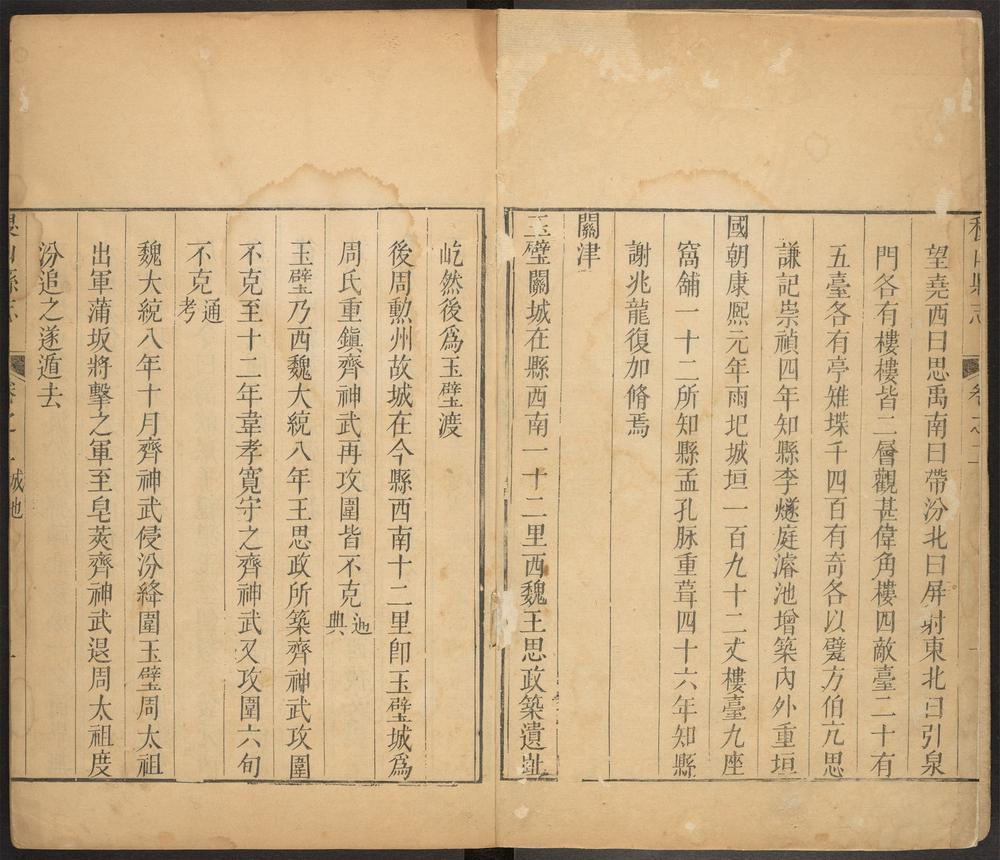 稷山縣志 卷之二
望堯西曰思禹南曰帶汾北曰屏射東北曰引泉
門各有樓樓皆二層觀甚偉角樓四敵臺二十有
五臺各有亭雉堞千四百有奇各以甓方伯亢思
謙記崇禎四年知縣李燧庭濬池增築內外重垣
國朝康熙元年雨圯城垣一百九十二丈樓臺九座
窩舖一十二所知縣孟孔脉重葺四十六年知縣
謝兆龍復加脩焉
關津
玉璧關城在縣西南一十二里西魏王思政築遺址
屹然後爲玉璧渡
後周勲州故城在今縣西南十二里卽玉璧城爲
周氏重鎭齊神武再攻圍皆不克通典
玉璧乃西魏大統八年王思政所築齊神武攻圍
不克至十二年韋孝寬守之齊神武又攻圍六旬
不克通考
魏大統八年十月齊神武侵汾絳圍玉璧周太祖
出軍蒲坂將擊之軍至皂莢齊神武退周太祖度
汾追之遂遁去
城池